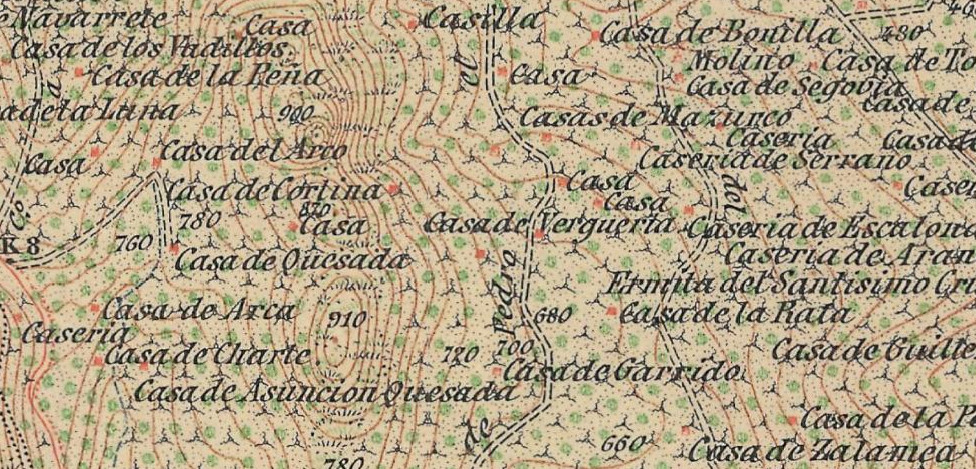 Navarrete
Casa
Casilla
Casa de los Vadillos
Casa de Bonilla
480
Casa de la Peña
el
Casa
Molino
Casa de
Casa de Segovia
Casa de
a de la Luna
900
Casas de Mazurco
Casería
Casa
Casa del Arco
Casería de Serrano
Casa
Casa
Casa de Cortina
Casa
del
C.º
780
870
Casa
Casa de Verguería
Casería de
K 8
760
Casa de Quesada
Casería de
Pedro
Ermita del Santísimo
Casa de Arca
910
680
Casa de la Rata
Casería
Casa de Charte
720
700
Casa de
Casa de Garrido
Casa de Asunción Quesada
Casa de la
de
660
Casa de Zalamea
780